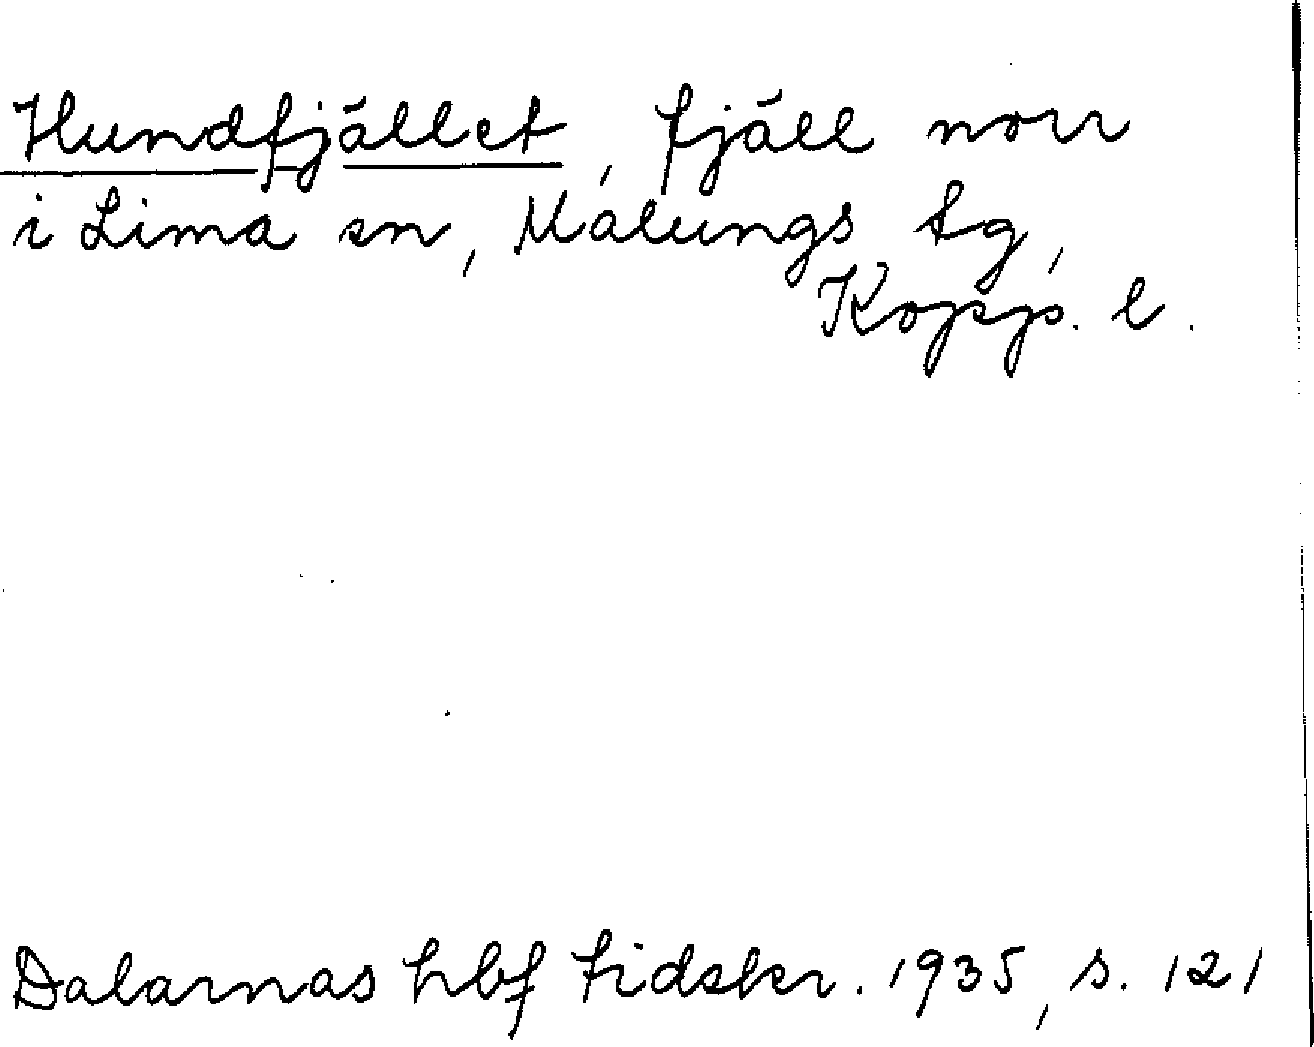 Hundfjället, fjäll norr
i Lima sn, Malungs tg,
Kopp. l.
Dalarnas hbf tidskr. 1935, s. 121